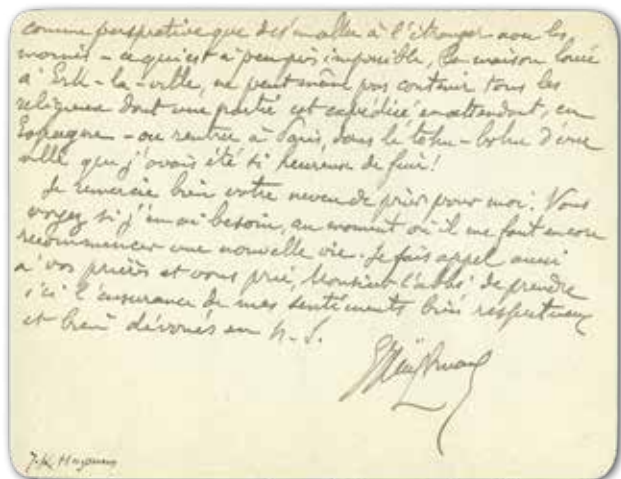 comme perspective que de m'en aller à l'étranger avec les
moines – ce qui est à peu près impossible, la maison louée
à Erk-la-ville, ne peut même pas contenir tous les
religieux dont une partie est expédiée, en attendant, en
Espagne – ou rentrer à Paris, dans le tohu-bohu d'une
ville que j'avais été si heureux de fuir!
Je remercie bien votre neveu de prier pour moi. Vous
voyez si j'en ai besoin, au moment où il me faut encore
recommencer une nouvelle vie. Je fais appel aussi
à vos prières et vous prie, Monsieur l'abbé de prendre
ici l'assurance de mes sentiments bien respectueux
et bien dévoués en N.-S.
J.K. Huysmans